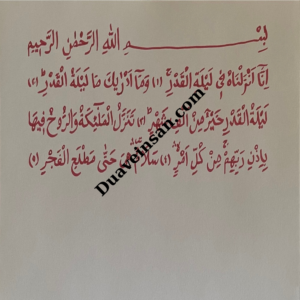 بِسْمِ اللهِ الرَّحْمٰنِ الرَّحِيْمِ
اِنَّا اَنْزَلْنَاهُ فِيْ لَيْلَةِ الْقَدْرِ (١) وَمَا اَدْرٰىكَ مَا لَيْلَةُ الْقَدْرِ (٢)
لَيْلَةُ الْقَدْرِ خَيْرٌ مِنْ اَلْفِ شَهْرٍ (٣) تَنَزَّلُ الْمَلٰٓئِكَةُ وَالرُّوْحُ فِيْهَا
بِاِذْنِ رَبِّهِمْ مِنْ كُلِّ اَمْرٍ (٤) سَلَامٌ هِيَ حَتّٰى مَطْلَعِ الْفَجْرِ (٥)
Duaveinsan.com